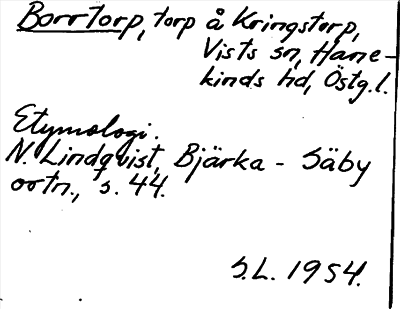 Borrtorp, torp å Kringstorp,
Vists sn, Hane-
kinds hd, Östg.l.
Etymologi.
N. Lindqvist, Bjärka - Säby
ortn., s. 44.
S.L. 1954.